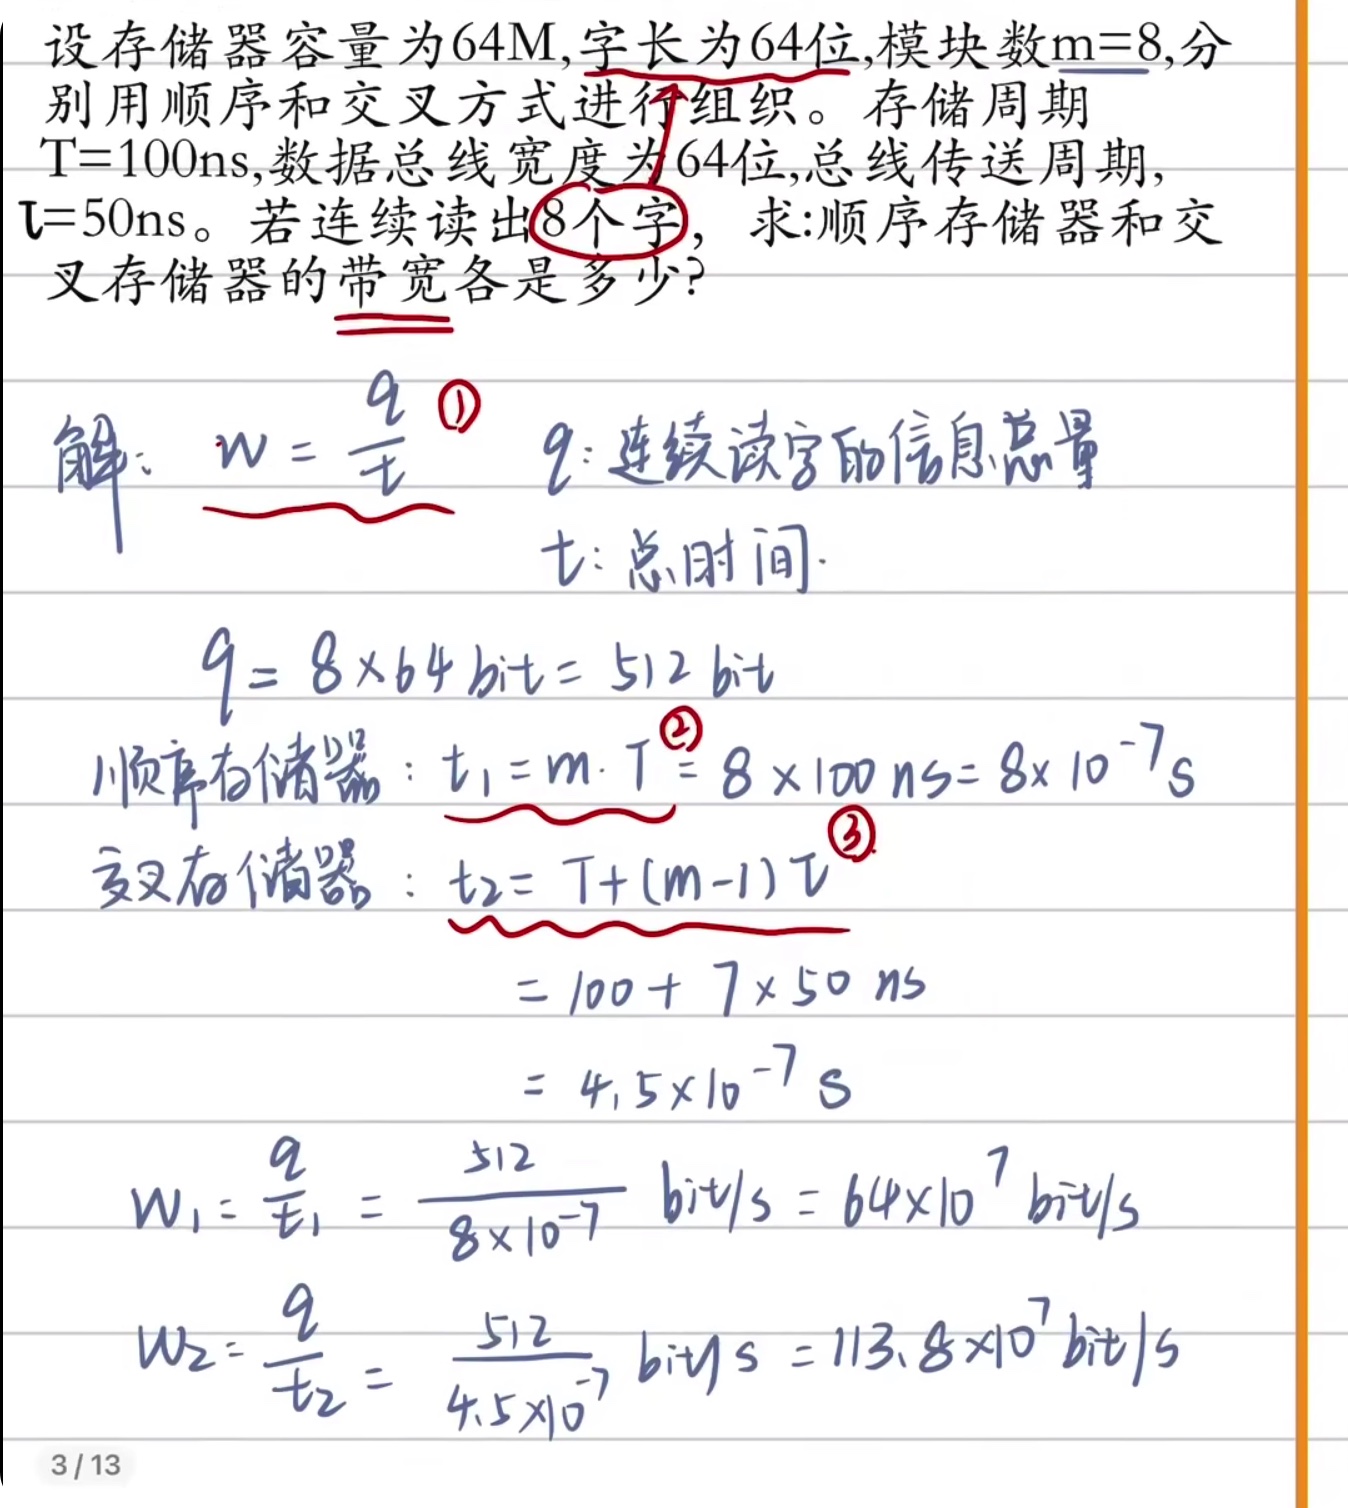 设存储器容量为64M,字长为64位,模块数m=8,分
别用顺序和交叉方式进行组织。存储周期
T=100ns,数据总线宽度为64位,总线传送周期,
τ=50ns。若连续读出8个字，求:顺序存储器和交
叉存储器的带宽各是多少?
解: W = q/t ① q: 连续读字的信息总量
t: 总时间.
q = 8×64 bit = 512 bit
顺序存储器: t₁ = m·T ② = 8×100 ns = 8×10⁻⁷ s
交叉存储器: t₂ = T+(m-1)τ ③
= 100 + 7×50 ns
= 4.5×10⁻⁷ s
W₁ = q/t₁ = 512/8×10⁻⁷ bit/s = 64×10⁷ bit/s
W₂ = q/t₂ = 512/4.5×10⁻⁷ bit/s = 113.8×10⁷ bit/s
3 / 13